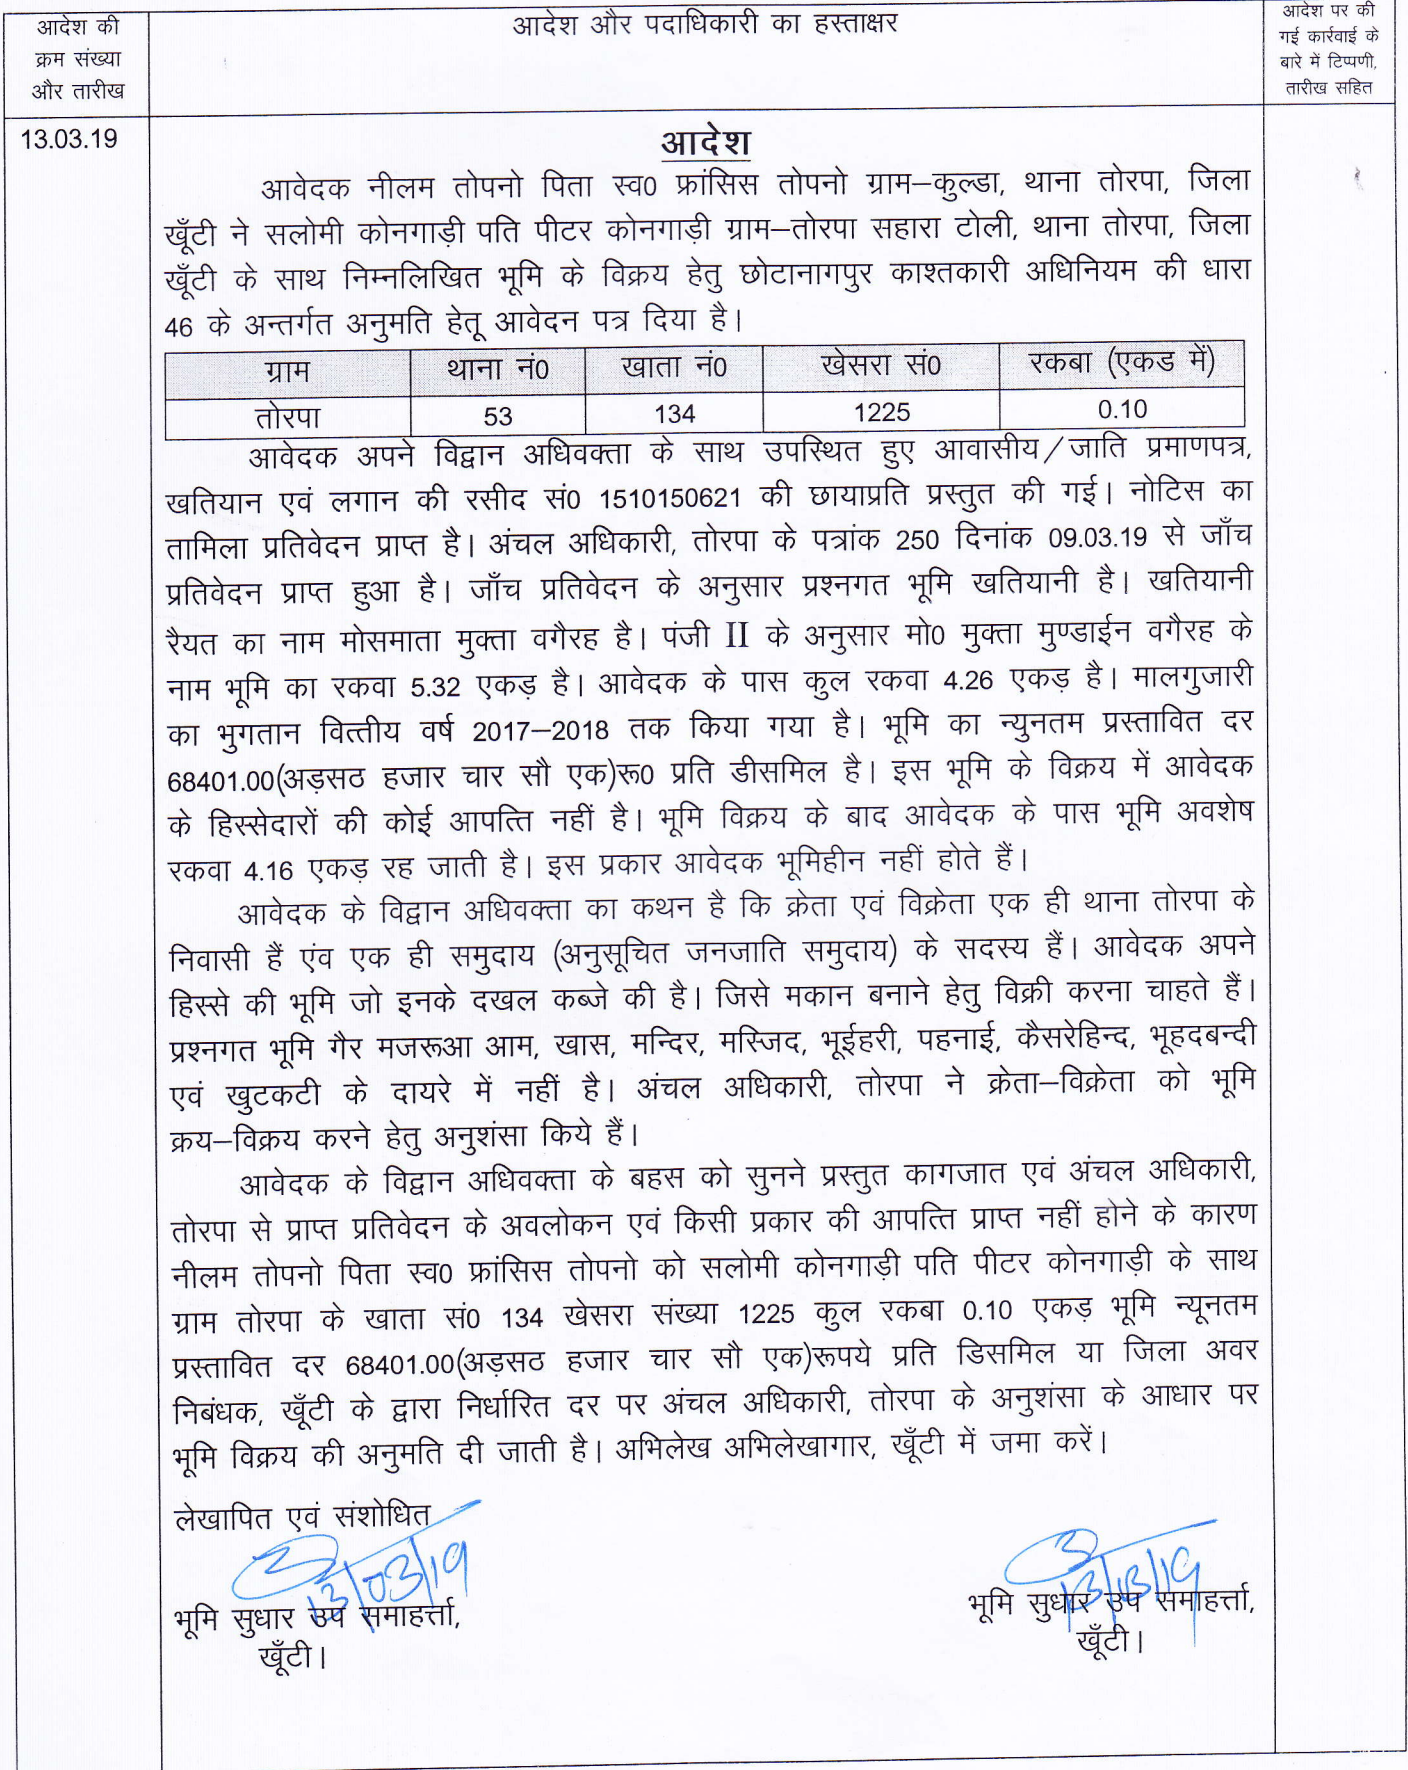 आदेश की
क्रम संख्या
और तारीख
आदेश और पदाधिकारी का हस्ताक्षर
आदेश पर की
गई कार्रवाई के
बारे में टिप्पणी,
तारीख सहित
13.03.19
आदेश
आवेदक नीलम तोपनो पिता स्व0 फ्रांसिस तोपनो ग्राम–कुल्डा, थाना तोरपा, जिला
खूँटी ने सलोमी कोनगाड़ी पति पीटर कोनगाड़ी ग्राम–तोरपा सहारा टोली, थाना तोरपा, जिला
खूँटी के साथ निम्नलिखित भूमि के विक्रय हेतु छोटानागपुर काश्तकारी अधिनियम की धारा
46 के अन्तर्गत अनुमति हेतू आवेदन पत्र दिया है।
ग्राम थाना नं0 खाता नं0 खेसरा सं0 रकबा (एकड में)
तोरपा 53 134 1225 0.10
आवेदक अपने विद्वान अधिवक्ता के साथ उपस्थित हुए आवासीय/जाति प्रमाणपत्र,
खतियान एवं लगान की रसीद सं0 1510150621 की छायाप्रति प्रस्तुत की गई। नोटिस का
तामिला प्रतिवेदन प्राप्त है। अंचल अधिकारी, तोरपा के पत्रांक 250 दिनांक 09.03.19 से जाँच
प्रतिवेदन प्राप्त हुआ है। जाँच प्रतिवेदन के अनुसार प्रश्नगत भूमि खतियानी है। खतियानी
रैयत का नाम मोसमाता मुक्ता वगैरह है। पंजी II के अनुसार मो0 मुक्ता मुण्डाईन वगैरह के
नाम भूमि का रकवा 5.32 एकड़ है। आवेदक के पास कुल रकवा 4.26 एकड़ है। मालगुजारी
का भुगतान वित्तीय वर्ष 2017–2018 तक किया गया है। भूमि का न्युनतम प्रस्तावित दर
68401.00(अड़सठ हजार चार सौ एक)रू0 प्रति डीसमिल है। इस भूमि के विक्रय में आवेदक
के हिस्सेदारों की कोई आपत्ति नहीं है। भूमि विक्रय के बाद आवेदक के पास भूमि अवशेष
रकवा 4.16 एकड़ रह जाती है। इस प्रकार आवेदक भूमिहीन नहीं होते हैं।
आवेदक के विद्वान अधिवक्ता का कथन है कि क्रेता एवं विक्रेता एक ही थाना तोरपा के
निवासी हैं एंव एक ही समुदाय (अनुसूचित जनजाति समुदाय) के सदस्य हैं। आवेदक अपने
हिस्से की भूमि जो इनके दखल कब्जे की है। जिसे मकान बनाने हेतु विक्री करना चाहते हैं।
प्रश्नगत भूमि गैर मजरूआ आम, खास, मन्दिर, मस्जिद, भूईहरी, पहनाई, कैसरेहिन्द, भूहदबन्दी
एवं खुटकटी के दायरे में नहीं है। अंचल अधिकारी, तोरपा ने क्रेता–विक्रेता को भूमि
क्रय–विक्रय करने हेतु अनुशंसा किये हैं।
आवेदक के विद्वान अधिवक्ता के बहस को सुनने प्रस्तुत कागजात एवं अंचल अधिकारी,
तोरपा से प्राप्त प्रतिवेदन के अवलोकन एवं किसी प्रकार की आपत्ति प्राप्त नहीं होने के कारण
नीलम तोपनो पिता स्व0 फ्रांसिस तोपनो को सलोमी कोनगाड़ी पति पीटर कोनगाड़ी के साथ
ग्राम तोरपा के खाता सं0 134 खेसरा संख्या 1225 कुल रकबा 0.10 एकड़ भूमि न्यूनतम
प्रस्तावित दर 68401.00(अड़सठ हजार चार सौ एक)रूपये प्रति डिसमिल या जिला अवर
निबंधक, खूँटी के द्वारा निर्धारित दर पर अंचल अधिकारी, तोरपा के अनुशंसा के आधार पर
भूमि विक्रय की अनुमति दी जाती है। अभिलेख अभिलेखागार, खूँटी में जमा करें।
लेखापित एवं संशोधित
13/03/19 13/03/19
भूमि सुधार उप समाहर्त्ता, भूमि सुधार उप समाहर्त्ता,
खूँटी। खूँटी।